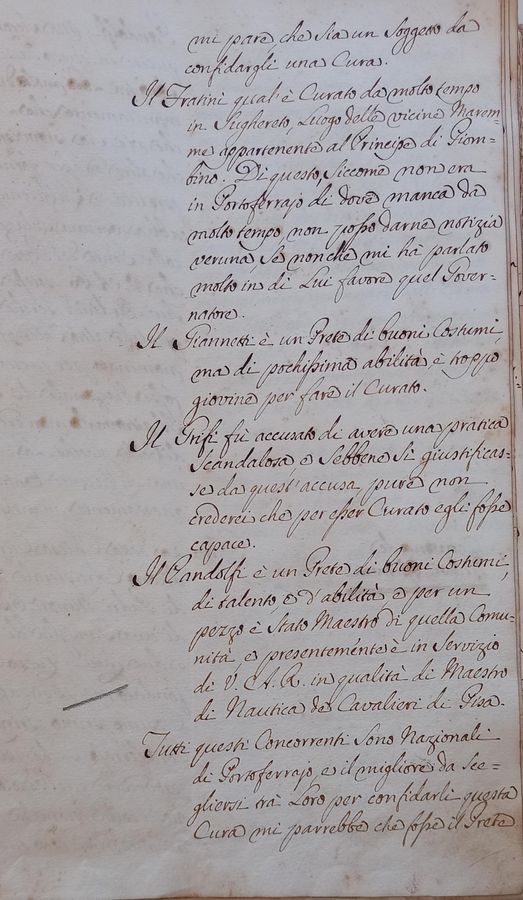 mi pare, che sia un Soggetto da
confidargli una Cura.
Il Fratini qual'è Curato da molto tempo
in Sughereto, Luogo delle vicine Marem-
me appartenente al Principe di Piom-
bino. Di questo, siccome non era
in Portoferrajo di dove manca da
molto tempo, non posso darne notizia
veruna, se non che mi hà parlato
molto in di Lui favore quel Gover-
natore.
Il Giannetti è un Prete di buoni Costumi,
ma di pochissima abilità, e troppo
giovine per fare il Curato.
Il Grifi fù accusato di avere una pratica
Scandalosa e Sebbene Si giustificas-
se da quest'accusa pure non
crederei che per esser Curato egli fosse
capace.
Il Candolfi è un Prete di buoni Costumi,
di talento, e d'abilità e per un
pezzo è Stato Maestro di quella Comu-
nità, e presentemente è in Servizio
di V. A. R. in qualità di Maestro
di Nautica de Cavalieri di Pisa.
Tutti questi Concorrenti Sono Nazionali
di Portoferrajo, e il migliore da Sce-
gliersi trà Loro per confidarli questa
Cura mi parrebbe che fosse il Prete